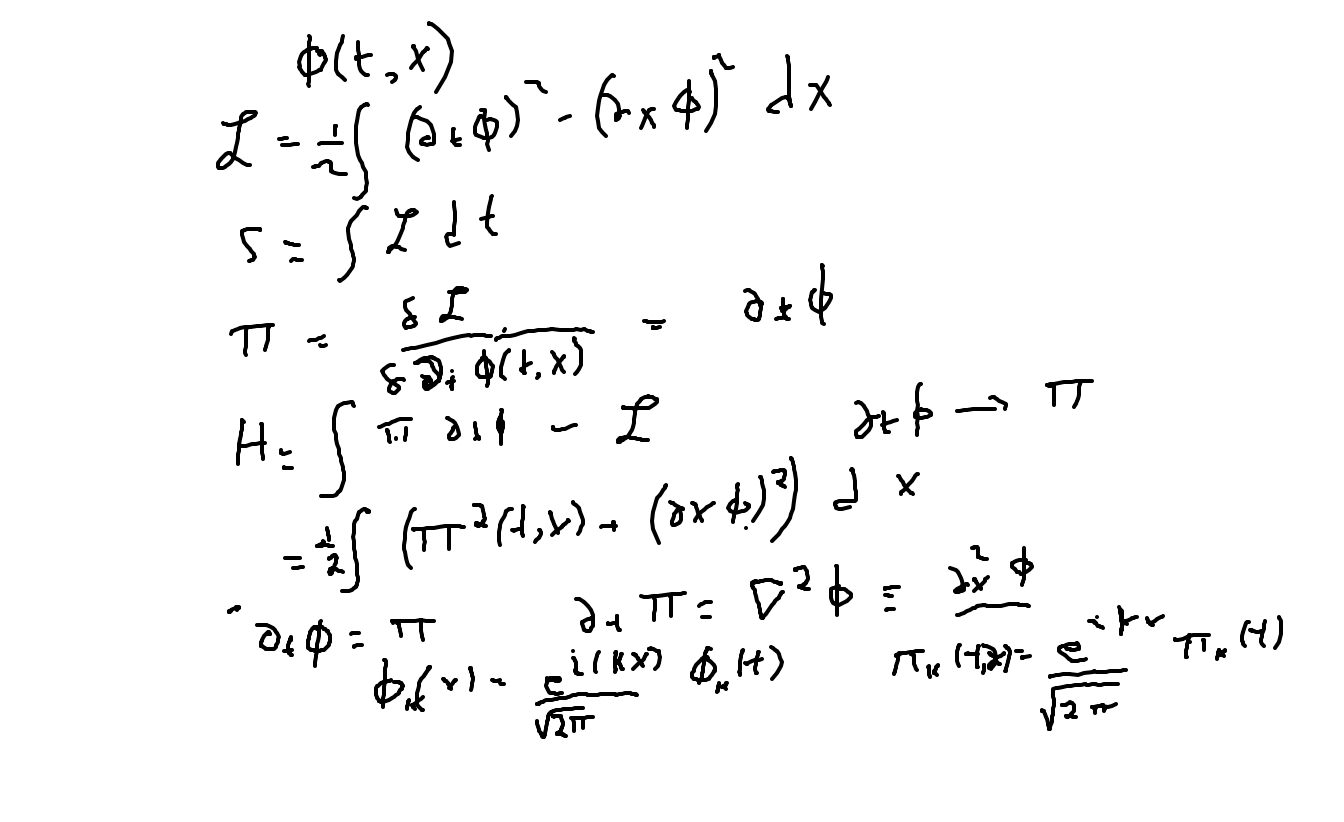 ϕ(t,x)
ℒ = 1/2 ∫ (∂tϕ)² - (∂xϕ)² dx
S = ∫ ℒ dt
π = δℒ / δ∂tϕ(t,x) = ∂tϕ
H = ∫ π ∂tϕ - ℒ ∂tϕ → π
= 1/2 ∫ (π²(t,x) + (∂xϕ)²) dx
∂tϕ = π ∂tπ = ∇²ϕ = ∂x²ϕ
ϕk(x) = e^i(kx) / √2π ϕk(t) πk(t,x) = e^ikx / √2π πk(t)